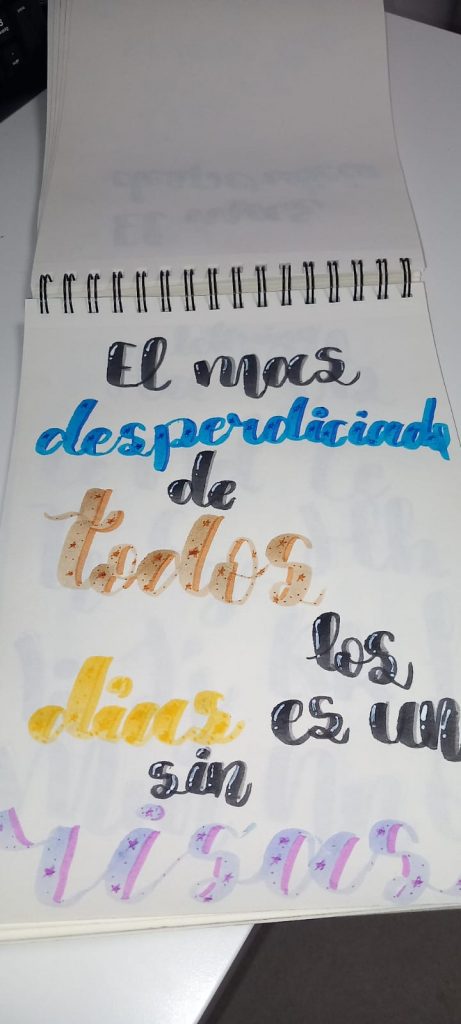 El mas
desperdiciado
de
todos
los
dias es un
sin
risas.